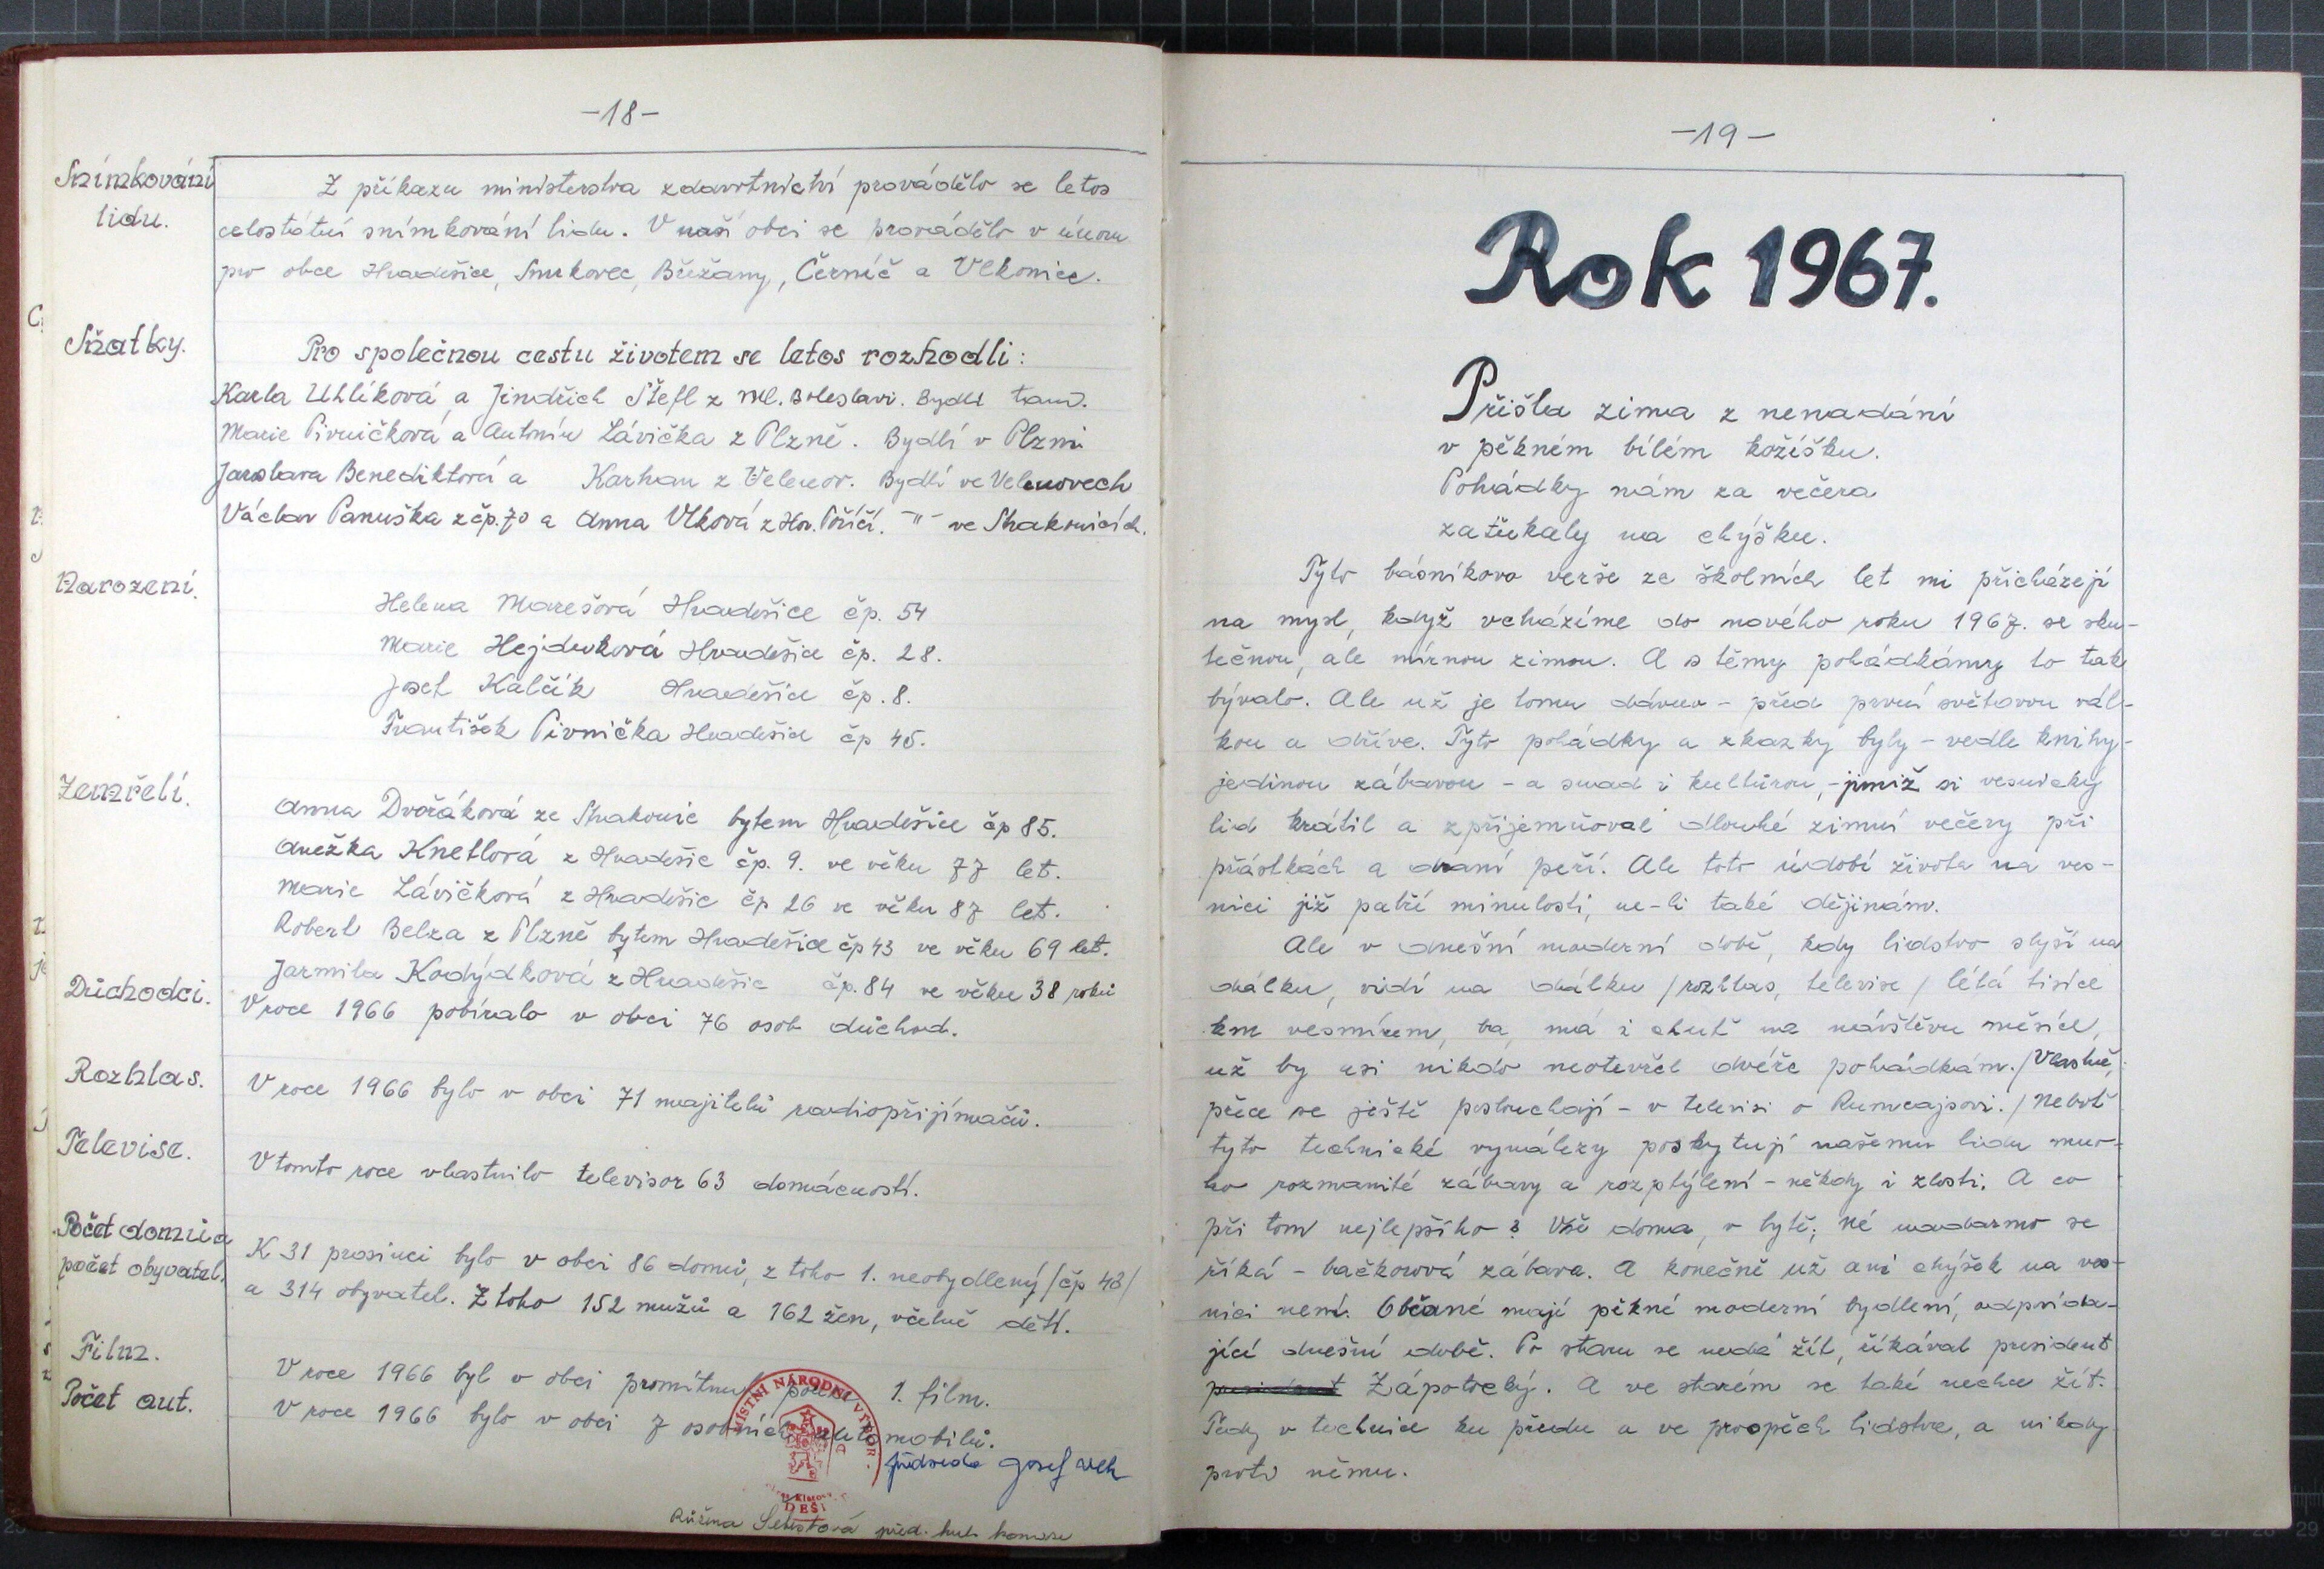 -18-
Snímkování
lidu.
Z příkazu ministerstva zdravotnictví provádělo se letos
celostátní snímkování lidu. V naší obci se provádělo v únoru
pro obce Hradešice, Smrkovec, Břežany, Černíč a Vlkonice.
Sňatky.
Pro společnou cestu životem se letos rozhodli:
Karla Uhlíková a Jindřich Štefl z Ml. Boleslavi. Bydlí tam.
Marie Pivničková a Antonín Lávička z Plzně. Bydlí v Plzni
Jaroslava Benediktová a Karhan z Velenov. Bydlí ve Velenovech
Václav Panuška z čp. 70 a Anna Vlková z Hor. Poříčí. -"- ve Strakonicích.
Narození.
Helena Marešová Hradešice čp. 54
Marie Hejduková Hradešice čp. 28.
Josef Kalčík Hradešice čp. 8.
František Pivnička Hradešice čp 45.
Zemřelí.
Anna Dvořáková ze Strakonic bytem Hradešice čp 85.
Anežka Knetlová z Hradešic čp. 9. ve věku 77 let.
Marie Lávičková z Hradešic čp 26 ve věku 87 let.
Robert Belza z Plzně bytem Hradešice čp 43 ve věku 69 let.
Jarmila Kodýdková z Hradešic čp. 84 ve věku 38 roků
Důchodci.
V roce 1966 pobíralo v obci 76 osob důchod.
Rozhlas.
V roce 1966 bylo v obci 71 majitelů radiopřijímačů.
Televise.
V tomto roce vlastnilo televisor 63 domácností.
Počet domů a
počet obyvatel.
K 31 prosinci bylo v obci 86 domů, z toho 1. neobydlený /čp 43/
a 314 obyvatel. Z toho 152 mužů a 162 žen, včetně dětí.
Film.
V roce 1966 byl v obci promítnut pouze 1. film.
Počet aut.
V roce 1966 bylo v obci 7 osobních automobilů.
MÍSTNÍ NÁRODNÍ VÝBOR
předseda Josef Vlk
Růžena před. kult. komise
-19-
Rok 1967.
Přišla zima z nenadání
v pěkném bílém kožíšku.
Pohádky nám za večera
zaťukaly na chýšku.
Tyto básníkovo verše ze školních let mi přicházejí
na mysl, když vcházíme do nového roku 1967. se sku-
tečnou, ale mírnou zimou. A s těmy pohádkámy to tak
bývalo. Ale už je tomu dávno - před první světovou vál-
kou a dříve. Tyto pohádky a zkazky byly - vedle knihy-
jedinou zábavou - a snad i kultúrou, - jimiž si vesnický
lid krátil a zpříjemňoval dlouhé zimní večery při
přástkách a draní peří. Ale toto údobí života na ves-
nici již patří minulosti, ne-li také dějinám.
Ale v dnešní moderní době, kdy lidstvo slyší na
dálku, vidí na dálku /rozhlas, televise/ létá tisíce
km vesmírem, ba, má i chuť na návštěvu měsíce,
už by asi nikdo neotevřel dvéře pohádkám. /Vlastně,
přece se ještě poslouchají - v televisi o Rumcajsovi./ Neboť
tyto technické vynálezy poskytují našemu lidu mno-
ho rozmanité zábavy a rozptýlení - někdy i zlosti. A co
při tom nejlepšího? Vše doma, v bytě; né nadarmo se
říká - bačkorová zábava. A konečně už ani chýšek na ves-
nici není. Občané mají pěkné moderní bydlení, odpvída-
jící dnešní době. Po staru se nedá žít, říkával president
president Zápotocký. A ve starém se také nechce žít.
Tedy v technice ku předu a ve prospěch lidstva, a nikdy
proti němu.